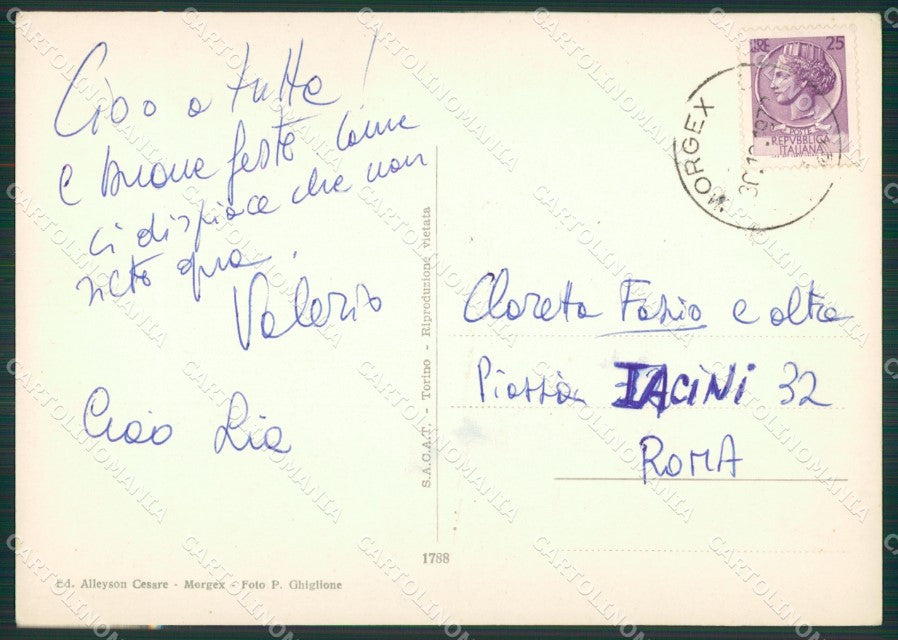 Ciao a tutte!
e buone feste come
ci dispiace che non
siete qua.
Valerio
Ciao Lia
S.A.C.A.T. - Torino - Riproduzione vietata
1788
Ed. Alleyson Cesare - Morgex - Foto P. Ghiglione
LIRE 25
POSTE
REPVBBLICA
ITALIANA
MORGEX
Cloretta Fazio e altre
Piazza IACINI 32
ROMA
CARTOLINOMANIA